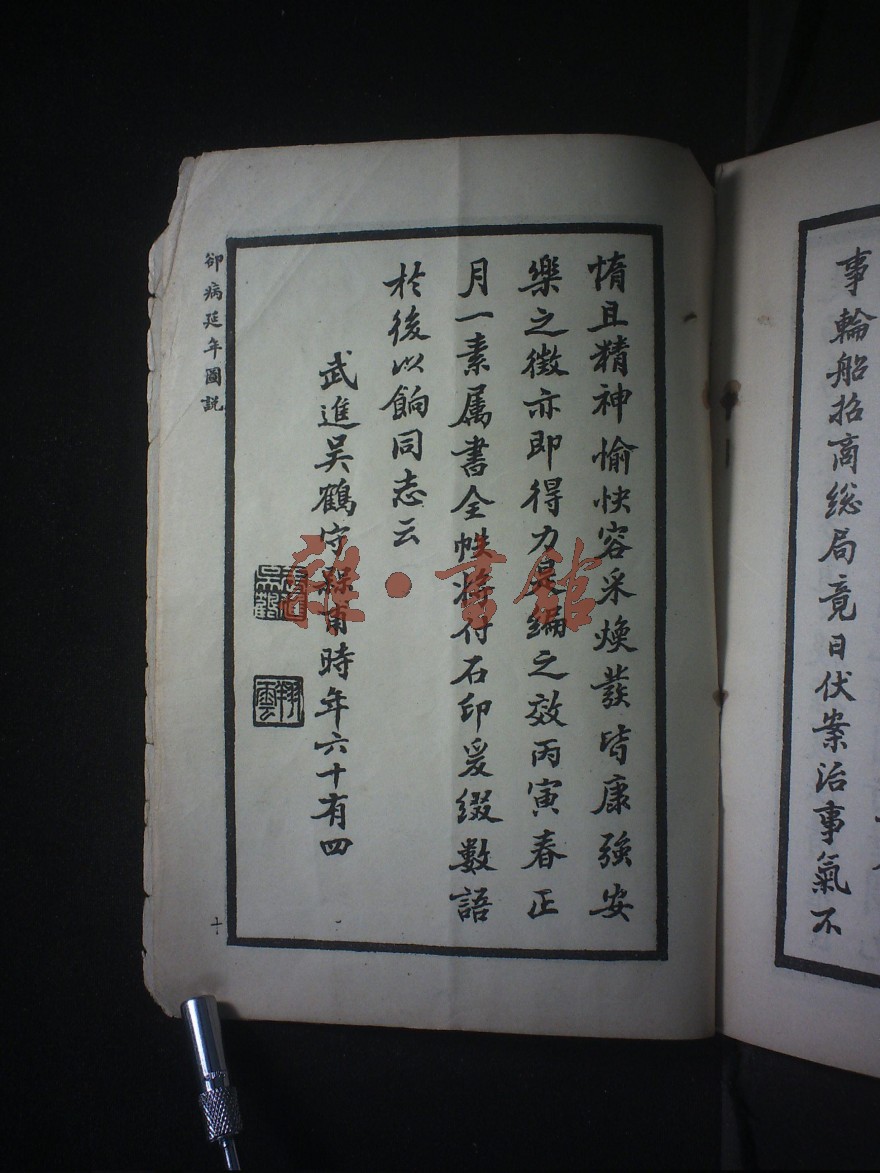 事輪船招商總局竟日伏案治事氣不
惰且精神愉快容采煥發皆康強安
樂之徵亦即得力是編之效丙寅春正
月一素属書全帙將付石印爰綴數語
於後以餉同志云
武進吳鶴 甫時年六十有四
武進吳鶴
翔雲
卻病延年圖説
十
雜·書館